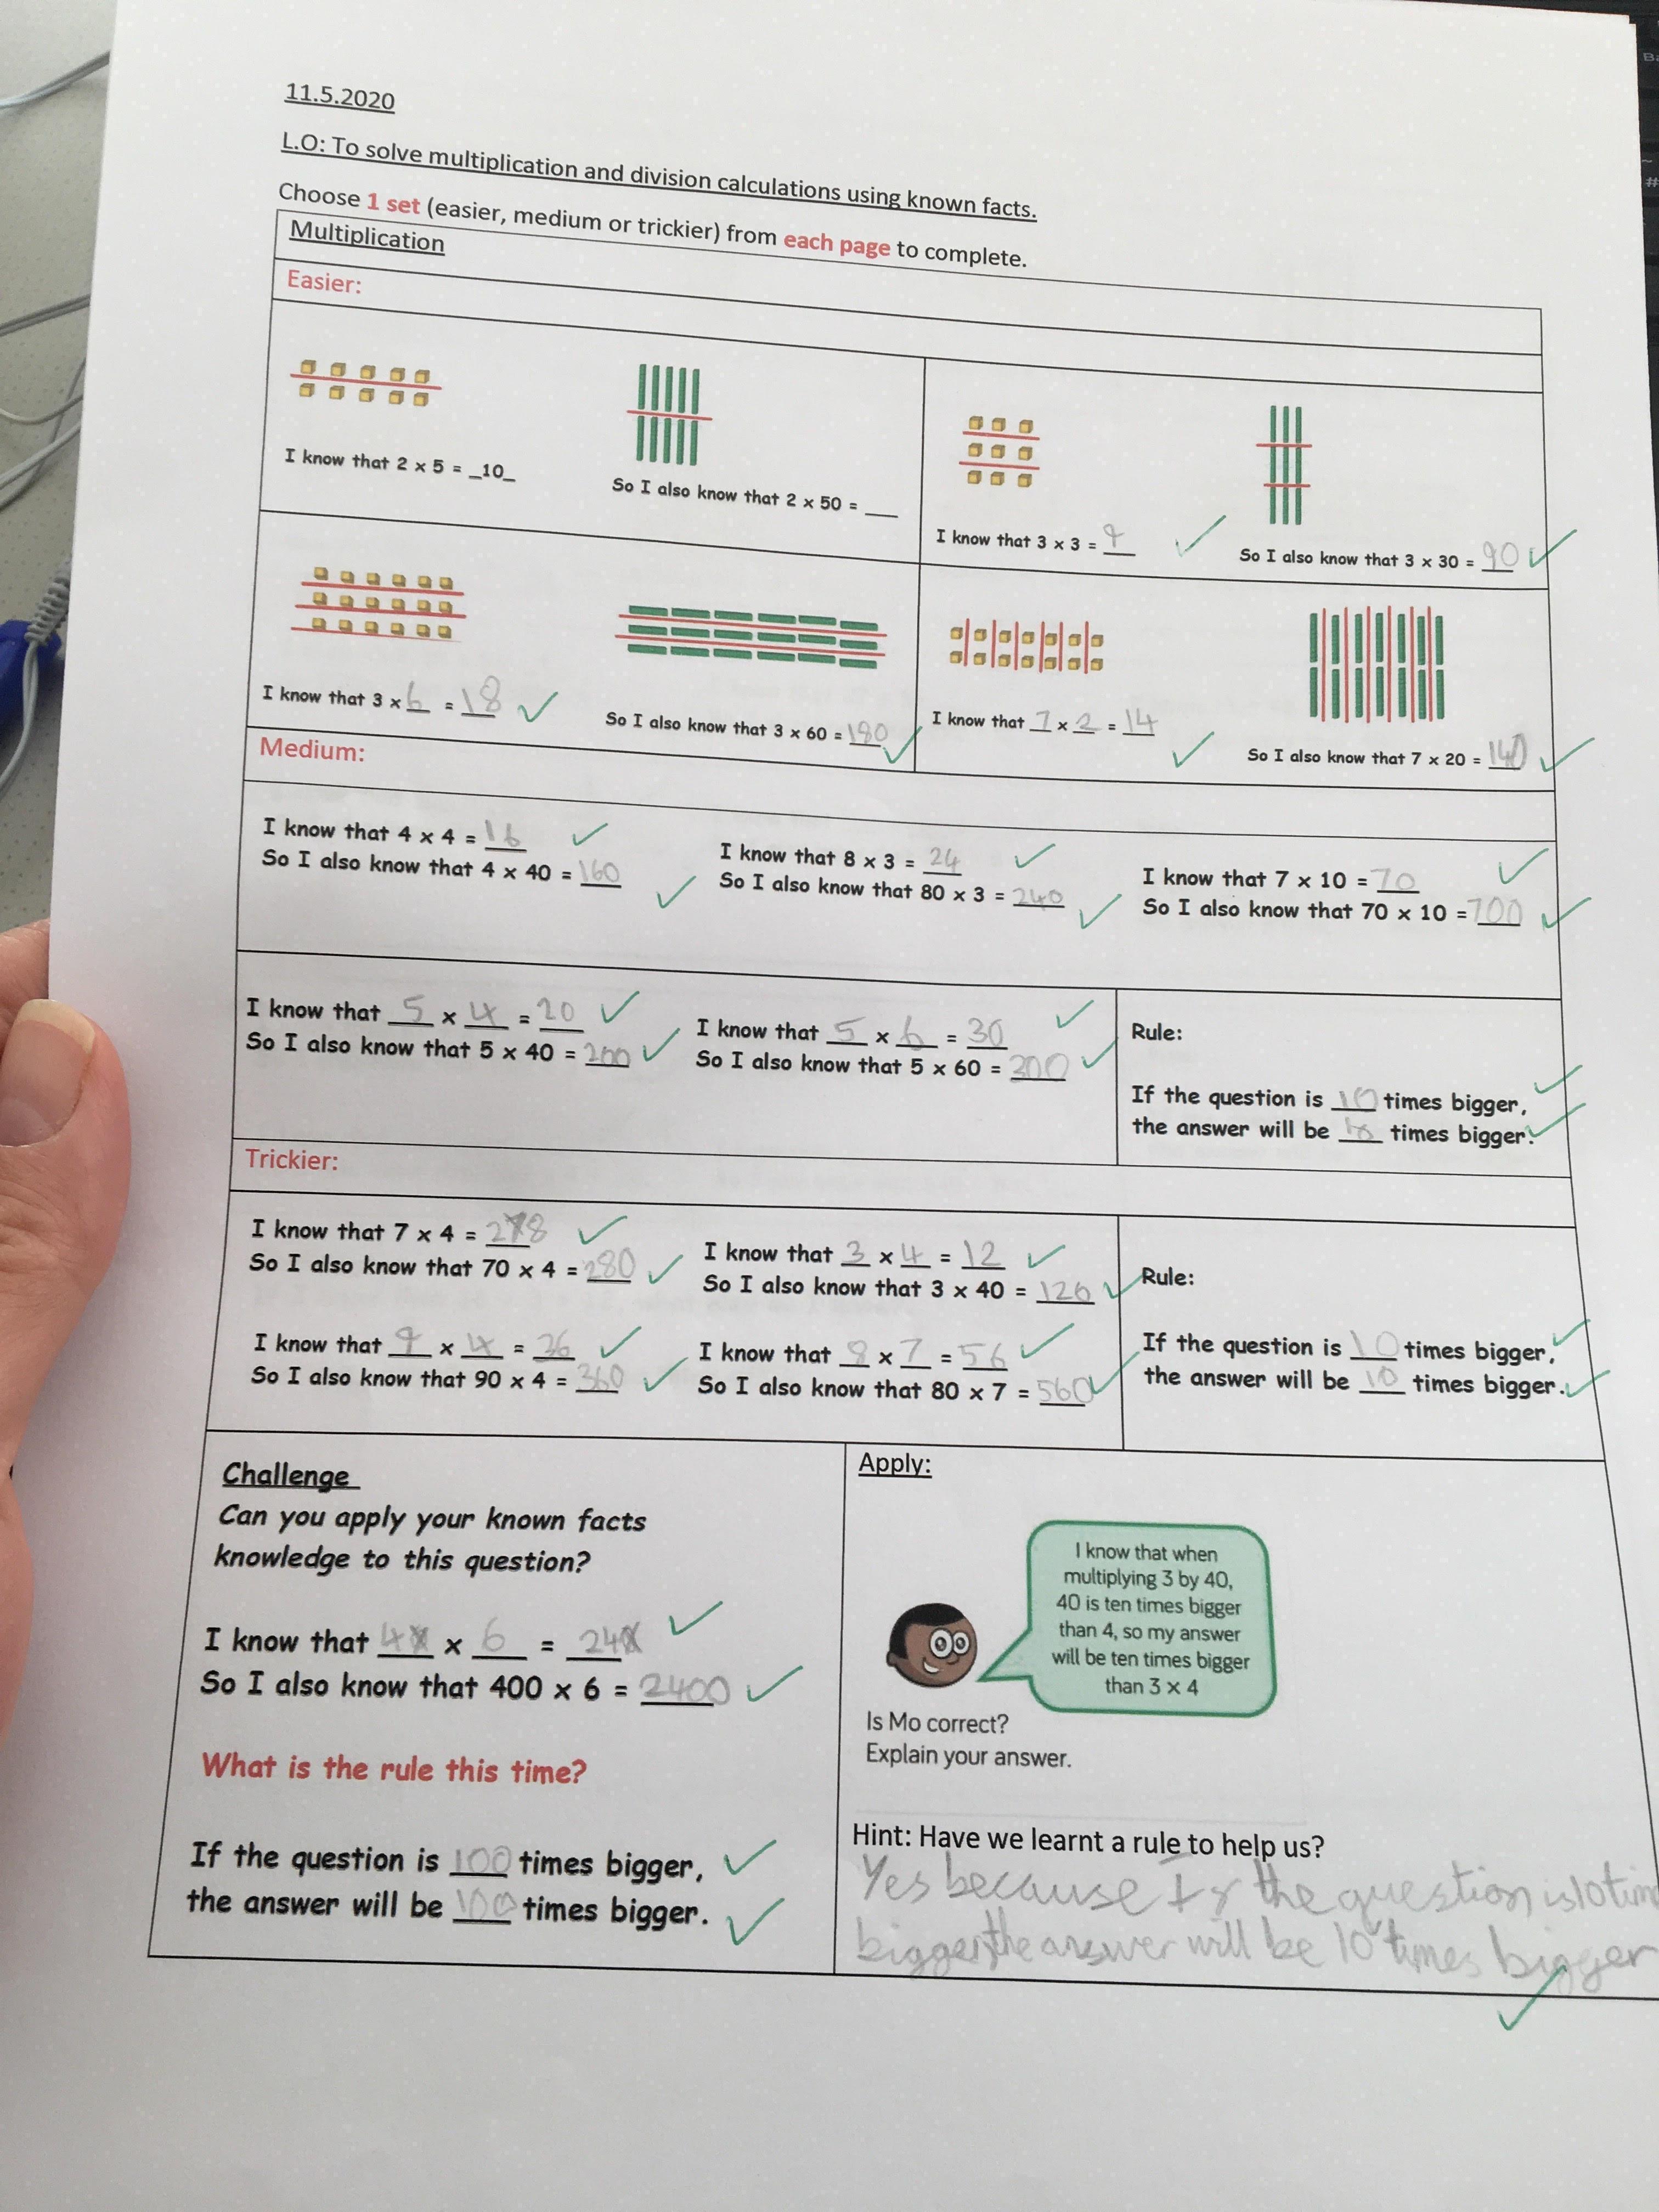 11.5.2020
L.O: To solve multiplication and division calculations using known facts.
Choose 1 set (easier, medium or trickier) from each page to complete.
Multiplication
Easier:
I know that 2 x 5 = _10_
So I also know that 2 x 50 = ___
I know that 3 x 3 = 9
So I also know that 3 x 30 = 90
I know that 3 x 6 = 18
So I also know that 3 x 60 = 180
I know that 7 x 2 = 14
So I also know that 7 x 20 = 140
Medium:
I know that 4 x 4 = 16
So I also know that 4 x 40 = 160
I know that 8 x 3 = 24
So I also know that 80 x 3 = 240
I know that 7 x 10 = 70
So I also know that 70 x 10 = 700
I know that 5 x 4 = 20
So I also know that 5 x 40 = 200
I know that 5 x 6 = 30
So I also know that 5 x 60 = 300
Rule:
If the question is 10 times bigger,
the answer will be 10 times bigger.
Trickier:
I know that 7 x 4 = 28
So I also know that 70 x 4 = 280
I know that 3 x 4 = 12
So I also know that 3 x 40 = 120
I know that 9 x 4 = 36
So I also know that 90 x 4 = 360
I know that 8 x 7 = 56
So I also know that 80 x 7 = 560
Rule:
If the question is 10 times bigger,
the answer will be 10 times bigger.
Challenge
Can you apply your known facts
knowledge to this question?
I know that 4 x 6 = 24
So I also know that 400 x 6 = 2400
What is the rule this time?
If the question is 100 times bigger,
the answer will be 100 times bigger.
Apply:
I know that when
multiplying 3 by 40,
40 is ten times bigger
than 4, so my answer
will be ten times bigger
than 3 x 4
Is Mo correct?
Explain your answer.
Hint: Have we learnt a rule to help us?
Yes because If the question is 10 tim
bigger, the answer will be 10 times bigger